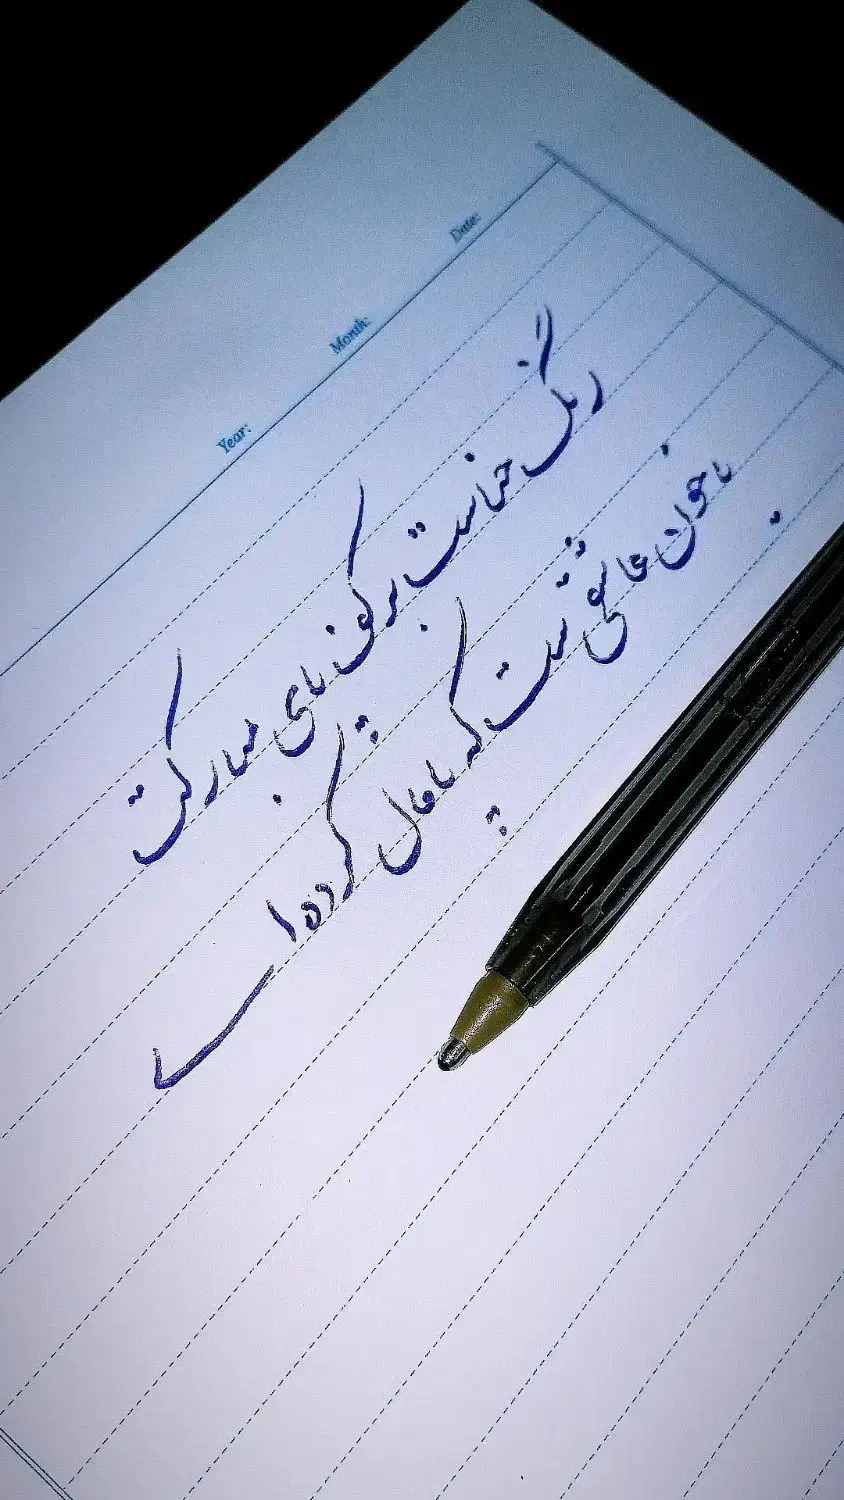 Year: Month: Date:
رنگ حناست بر کف پای مبارکت
یا خون عاشقی ست که پامال کرده ای